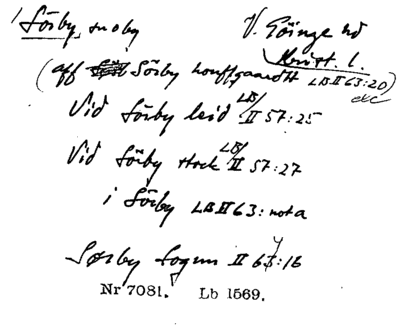 Sörby, snoby V. Göinge hd
Krist. l.
(aff Sörby houffgaardtt LB II 63:20)
etc
Vid Sörby leid LB II 57:25
Vid Sörby stock LB II 57:27
i Sörby LB II 63: nota
Sørby Sognn II 63:16
Nr 7081. Lb 1569.